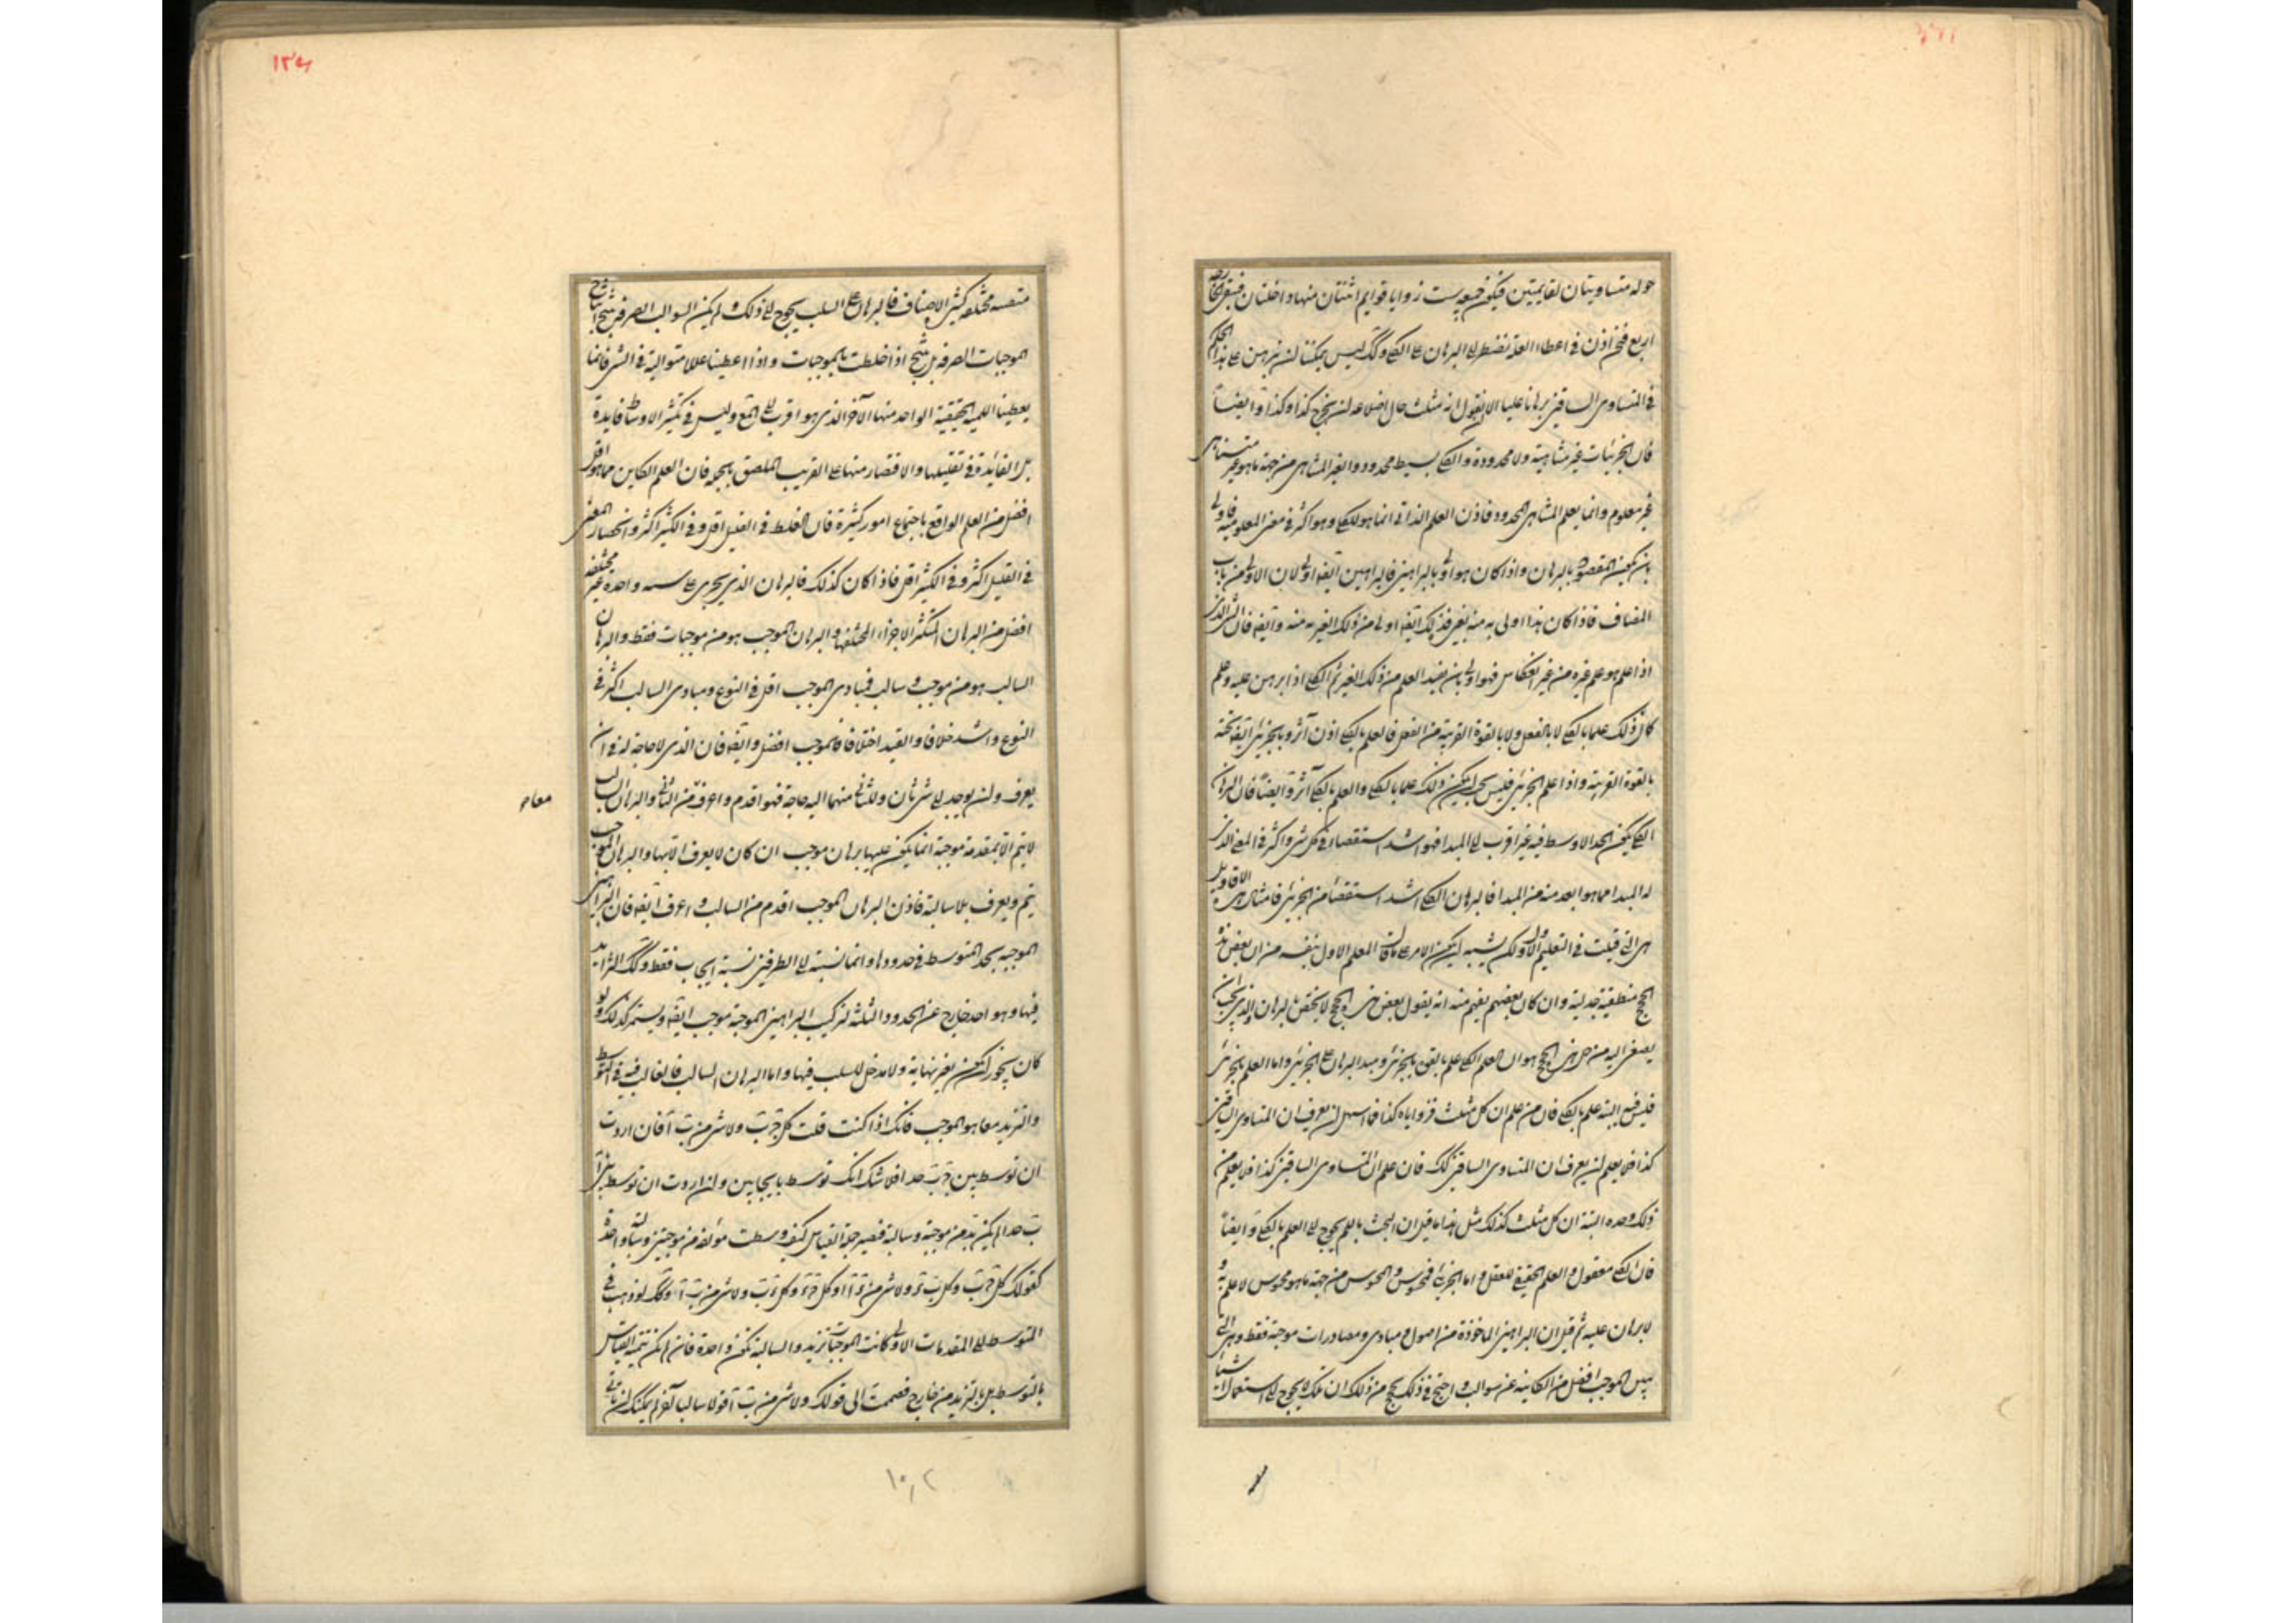 حوله متساويتان لقايمتين فيكون جميعه ست زوايا قوايم اثنتان منها داخلتان فيبقى خارجه
اربع فنحن اذن في اعطاء العلة نضطر الى البرهان على الكلي وكك ليس يمكننا ان نبرهن على هذا الحكم
في المتساوى الساقين برهانا عليا الا ان نقول انه مثلث حال اضلاعه ان يخرج كذا وكذا وايضاً
فان الجزئيات غير متناهية ولا محدودة والكلي بسيط محدود والغير المتناهى من جهة ما هو غير متناهى
غير معلوم وانما يعلم المتناهى المحدود فاذن العلم الذاتى انما هو للكلي وهو اكثر في معنى المعلومية فاولى
بان يكون المقصود بالبرهان واذا كان هو اولى بالبراهين فالبراهين ايضا اولى لان الاولى من باب
المضاف فاذا كان هذا اولى به منه بغيره فذلك ايضا اولى من ذلك الغير به منه وايضا فان الشى الذى
اذا علم هو علم غيره من غير انعكاس فهو اولى بان يفيد العلم من ذلك الغير ثم الكلي اذا برهن عليه وعلم
كان ذلك علما بالكلي لا بالفعل ولا بالقوة القريبة من الفعل فالعلم بالكلي اذن آثر وبالجزئى ايضا تحته
بالقوة القريبة واذا علم الجزئى فليس يجب ان يكون ذلك علما بالكلي والعلم بالكلي آثر وايضاً فان البرهان
الكلي يكون الحد الاوسط فيه غير اقرب الى المبدا فهو اشد استقصاء في كل شى واكثر في المعنى الذى
له المبدا مما هو ابعد منه من المبدا فالبرهان الكلي اشد استقصاء من الجزئى فامثال هذه الاقاويل
هى التى قيلت في التعليم الاول ولكن يشبه ان يكون الامر على ما قال المعلم الاول بنفسه من ان بعض هذه
الحجج منطقية جدلية وان كان بعضهم يفهم منه انه يقول بعض هذه الحجج لا يختص بالبرهان والذى يجب ان
يصغى اليه من جملة هذه الحجج هو ان العلم الكلي علم بالقوة بالجزئى ومبدا البرهان على الجزئى واما العلم بالجزئى
فليس فيه البتة علم بالكلي فان من علم ان كل مثلث فزواياه كذا فما اسهل ان يعرف ان المتساوى الساقين
كذا فلا يعلم ان يعرف ان المتساوى الساقين كك فان علم ان المتساوى الساقين كذا فلا يعلم من
ذلك وحده البتة ان كل مثلث كذلك مثل هذا ما قيل ان البحث باللم يحوج الى العلم بالكلي وايضاً
فان الكلي معقول والعلم الحقيقي للعقل واما الجزئى فمحسوس والمحسوس من جهة ما هو محسوس لا علم به و
لا برهان عليه ثم قيل ان البراهين الماخوذة من اصول ومبادى ومصادرات موجبة فقط وهى التى
يبين الموجب افضل من الكاينة عن سوالب واحتج في ذلك بحجج من ذلك ان تلك يحوج الى استعمال اشياء
متفننة مختلفة كثيرة الاصناف فالبرهان على السلب يحوج الى ذلك ولم يكن السوالب الصرفة تنتج انتاج
الموجبات الصرفة بل تنتج اذا خلطت بالموجبات واذا اعطينا عللا متوالية في الشى فانما
يعطينا اللمية الحقيقية الواحد منها الآخر الذى هو اقرب الى الجميع وليس في تكثير الاوساط فايدة
بل الفائدة في تقليلها والاقتصار منها على القريب الملصق بالنتيجة فان العلم الكاين مما هو اقل
افضل من العلم الواقع باجتماع امور كثيرة فان الغلط في القليل اقل وفي الكثير اكثر وانحصار المعنى
في القليل اكثر وفي الكثير اقل فاذا كان كذلك فالبرهان الذى يجرى على سنة واحدة غير مختلفه
افضل من البرهان المتكثر الاجزاء المختلفها والبرهان الموجب هو من موجبات فقط والبرهان
السالب هو من موجب وسالب فمبادى الموجب اقل في النوع ومبادى السالب اكثر في
النوع واشد خلافا والقيد اختلافا فالموجب افضل وايضا فان الذى لا حاجة له في ان
يعرف وان يوجد الى شى ثان وللثانى منهما اليه حاجة فهو اقدم واعرف من الثانى والبرهان السالب
لا يتم الا بمقدمة موجبة انما يكون عليها برهان موجب ان كان لا يعرف الا بها والبرهان الموجب
يتم ويعرف بلا سالبة فاذن البرهان الموجب اقدم من السالب واعرف ايضا فان البراهين
الموجبه يحد المتوسط في حدودها وانما نسبته الى الطرفين نسبة ايجاب فقط وكك التزايد
فيها وهو احد خارج عن الحدود الثلثة لتركيب البراهين الموجبة موجب ايضا ويستمر كذلك ولو
كان يجوز ان يكون بغير نهاية ولا مدخل للسلب فيها واما البرهان السالب فالغالب فيه في التوسط
والتزيد معا هو الموجب فانك اذا كنت قلت كل ج ب ولا شى من ب آ فان اردت
ان توسط بين ج ب حدا فلا شك انك توسط بايجابين وان اردت ان توسط بين آ
ب حدا لم يكن بد من موجبة وسالبة فيصير جملة القياس كيف وسطت مؤلفة من موجبتين وسالبة واحدة
كقولك كل ج ب وكل ب د ولا شى من د آ او كل ج د وكل د ب ولا شى من ب آ وكك لو ذهب في
المتوسط الى المقدمات الاولى كانت الموجبات تزيد والسالبة تكون واحدة فان لم يكن تتميه القياس
بالتوسط بل بالتزيد من خارج فضممت الى قولك ولا شى من ب آ قولا سالبا آخر لم يمكنك ان ياتى
معا